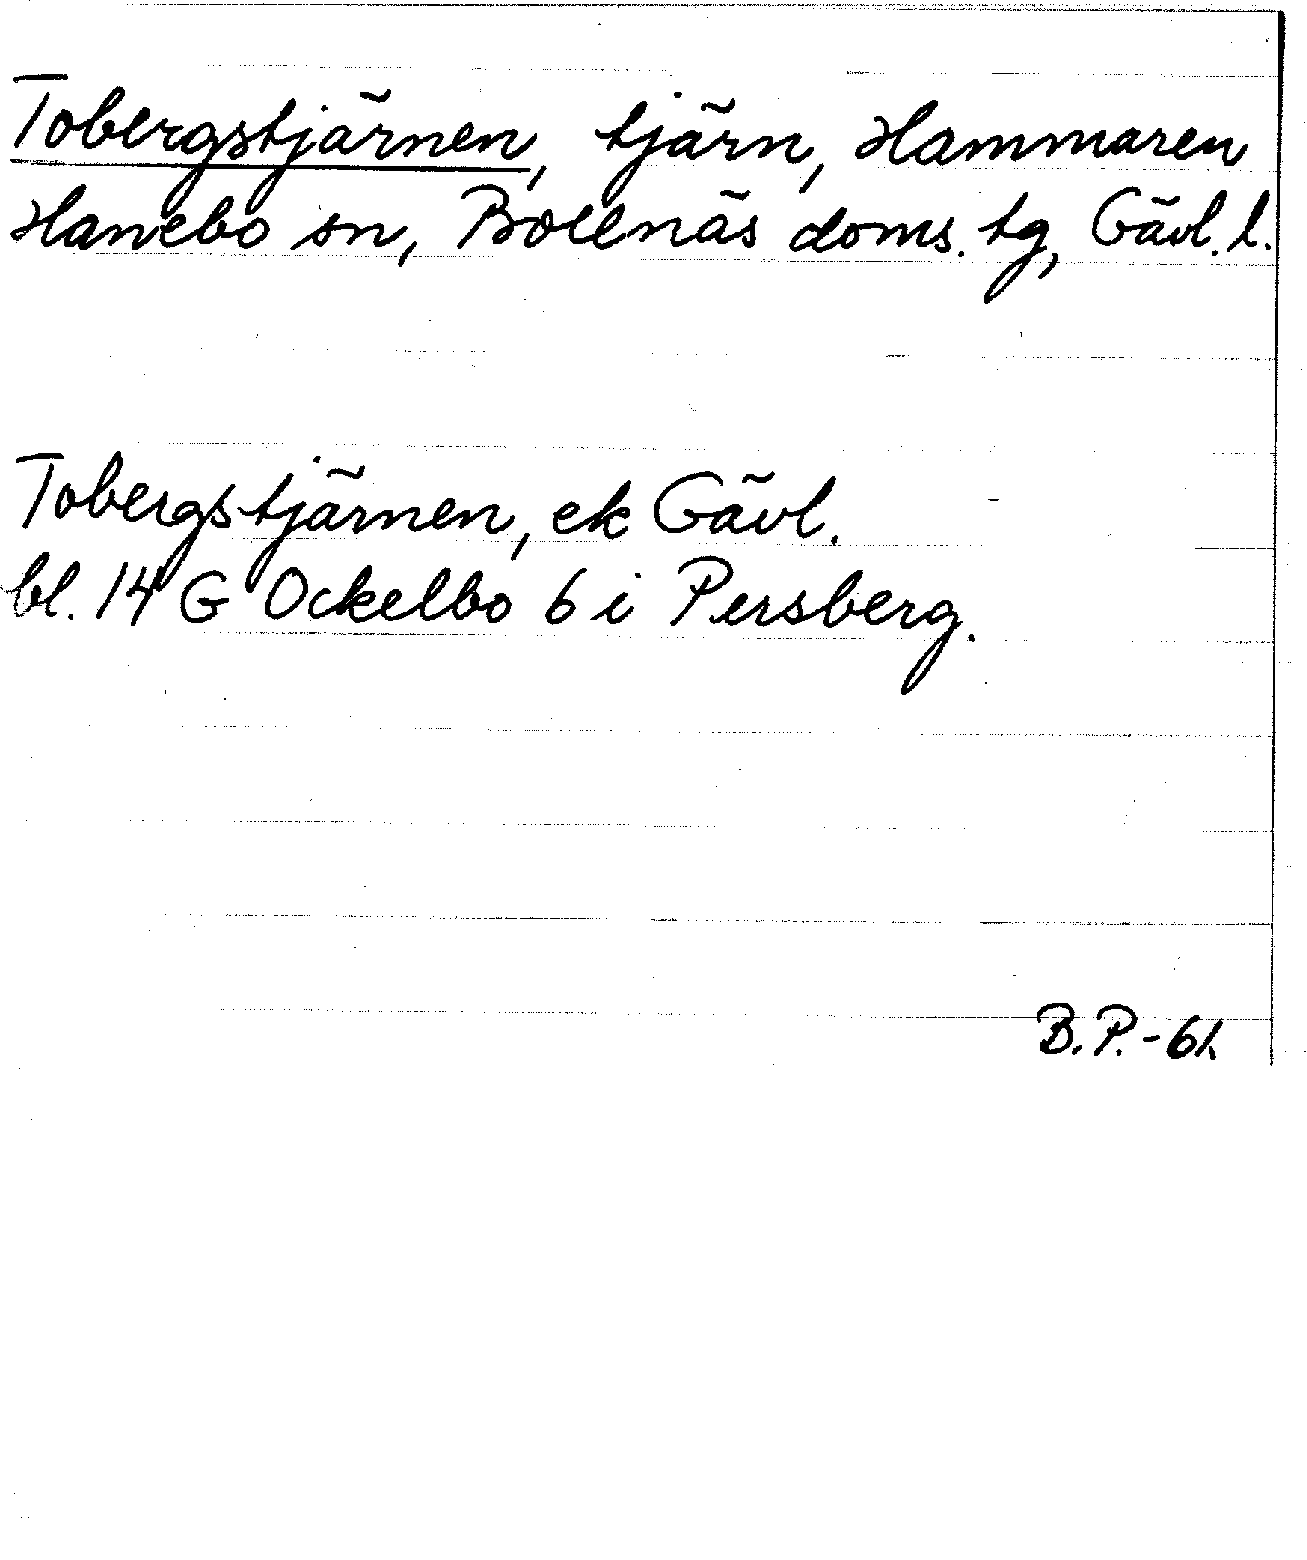 Tobergstjärnen, tjärn, Hammaren
Hanebo sn, Bollnäs doms. tg, Gävl. l.
Tobergstjärnen, ek Gävl.
bl. 14 G Ockelbo 6 i Persberg.
B.P.-61